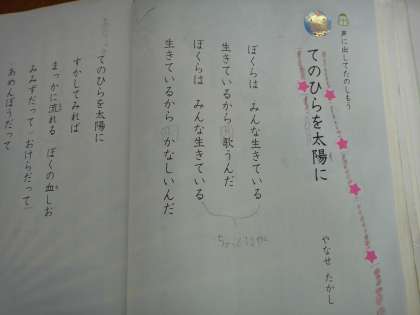 声に出してたのしもう
てのひらを太陽に
やなせ たかし
ぼくらは みんな生きている
生きているから 歌うんだ
ぼくらは みんな生きている
生きているから かなしいんだ
てのひらを太陽に
すかしてみれば
まっかに流れる ぼくの血しお
みみずだって おけらだって
あめんぼうだって